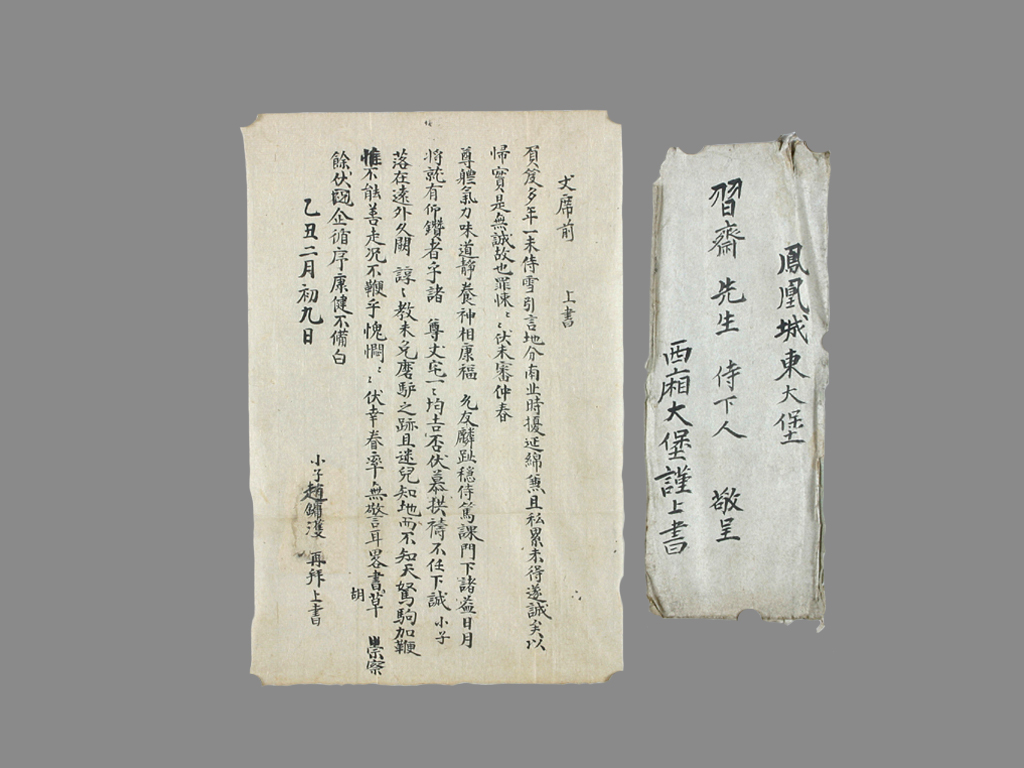 丈席前　上書
負笈多年一未侍雪引言地分南北時擾延綿兼且私累未得遂誠矣以
帰實是無誠故也罪悚〻伏未審仲春
尊體氣力味道靜養神相康福　允友麟趾穩侍篤課門下諸益日月
將就有仰鑽者乎諸　尊丈宅一〻均吉否伏慕拱禱不任下誠　小子
落在遠外久闕　諄〻教未免磨驢之跡且迷兒知地而不知天駑駒加鞭
惟不能善走況不鞭乎愧憫〻伏幸眷率無警言耳畧書草　崇察
胡
餘伏國企循序康健不備白
乙丑二月初九日
小子趙鏞濩　再拜上書
鳳凰城東大堡
習齋先生　侍下人　敬呈
西廂大堡謹上書